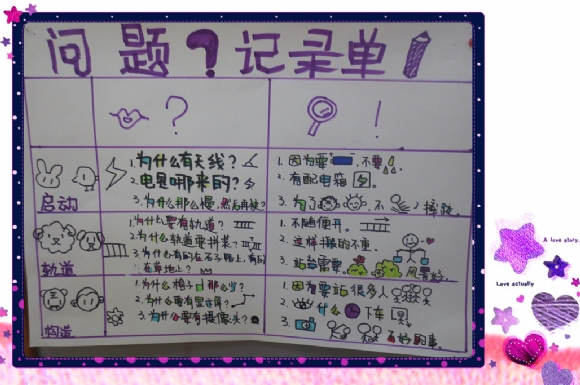 问题?记录单
? !
启动
1.为什么有天线?
2.电是哪来的?
3.为什么那么慢,然后再快?
1.因为要,不要。
2.有配电箱。
3.为了,不
轨道
1.为什么要有轨道?
2.为什么轨道要拼来?
3.为什么有的在石子路上,有的在草地上?
1.不能随便开。
2.这样
3.站台需要。风景好
构造
1.为什么椅子那么少?
2.为什么要有显示屏?
3.为什么要有摄像头?
1.因为要站很多人
2.什么 下车
3. 不好的事
A love story.
Love actually